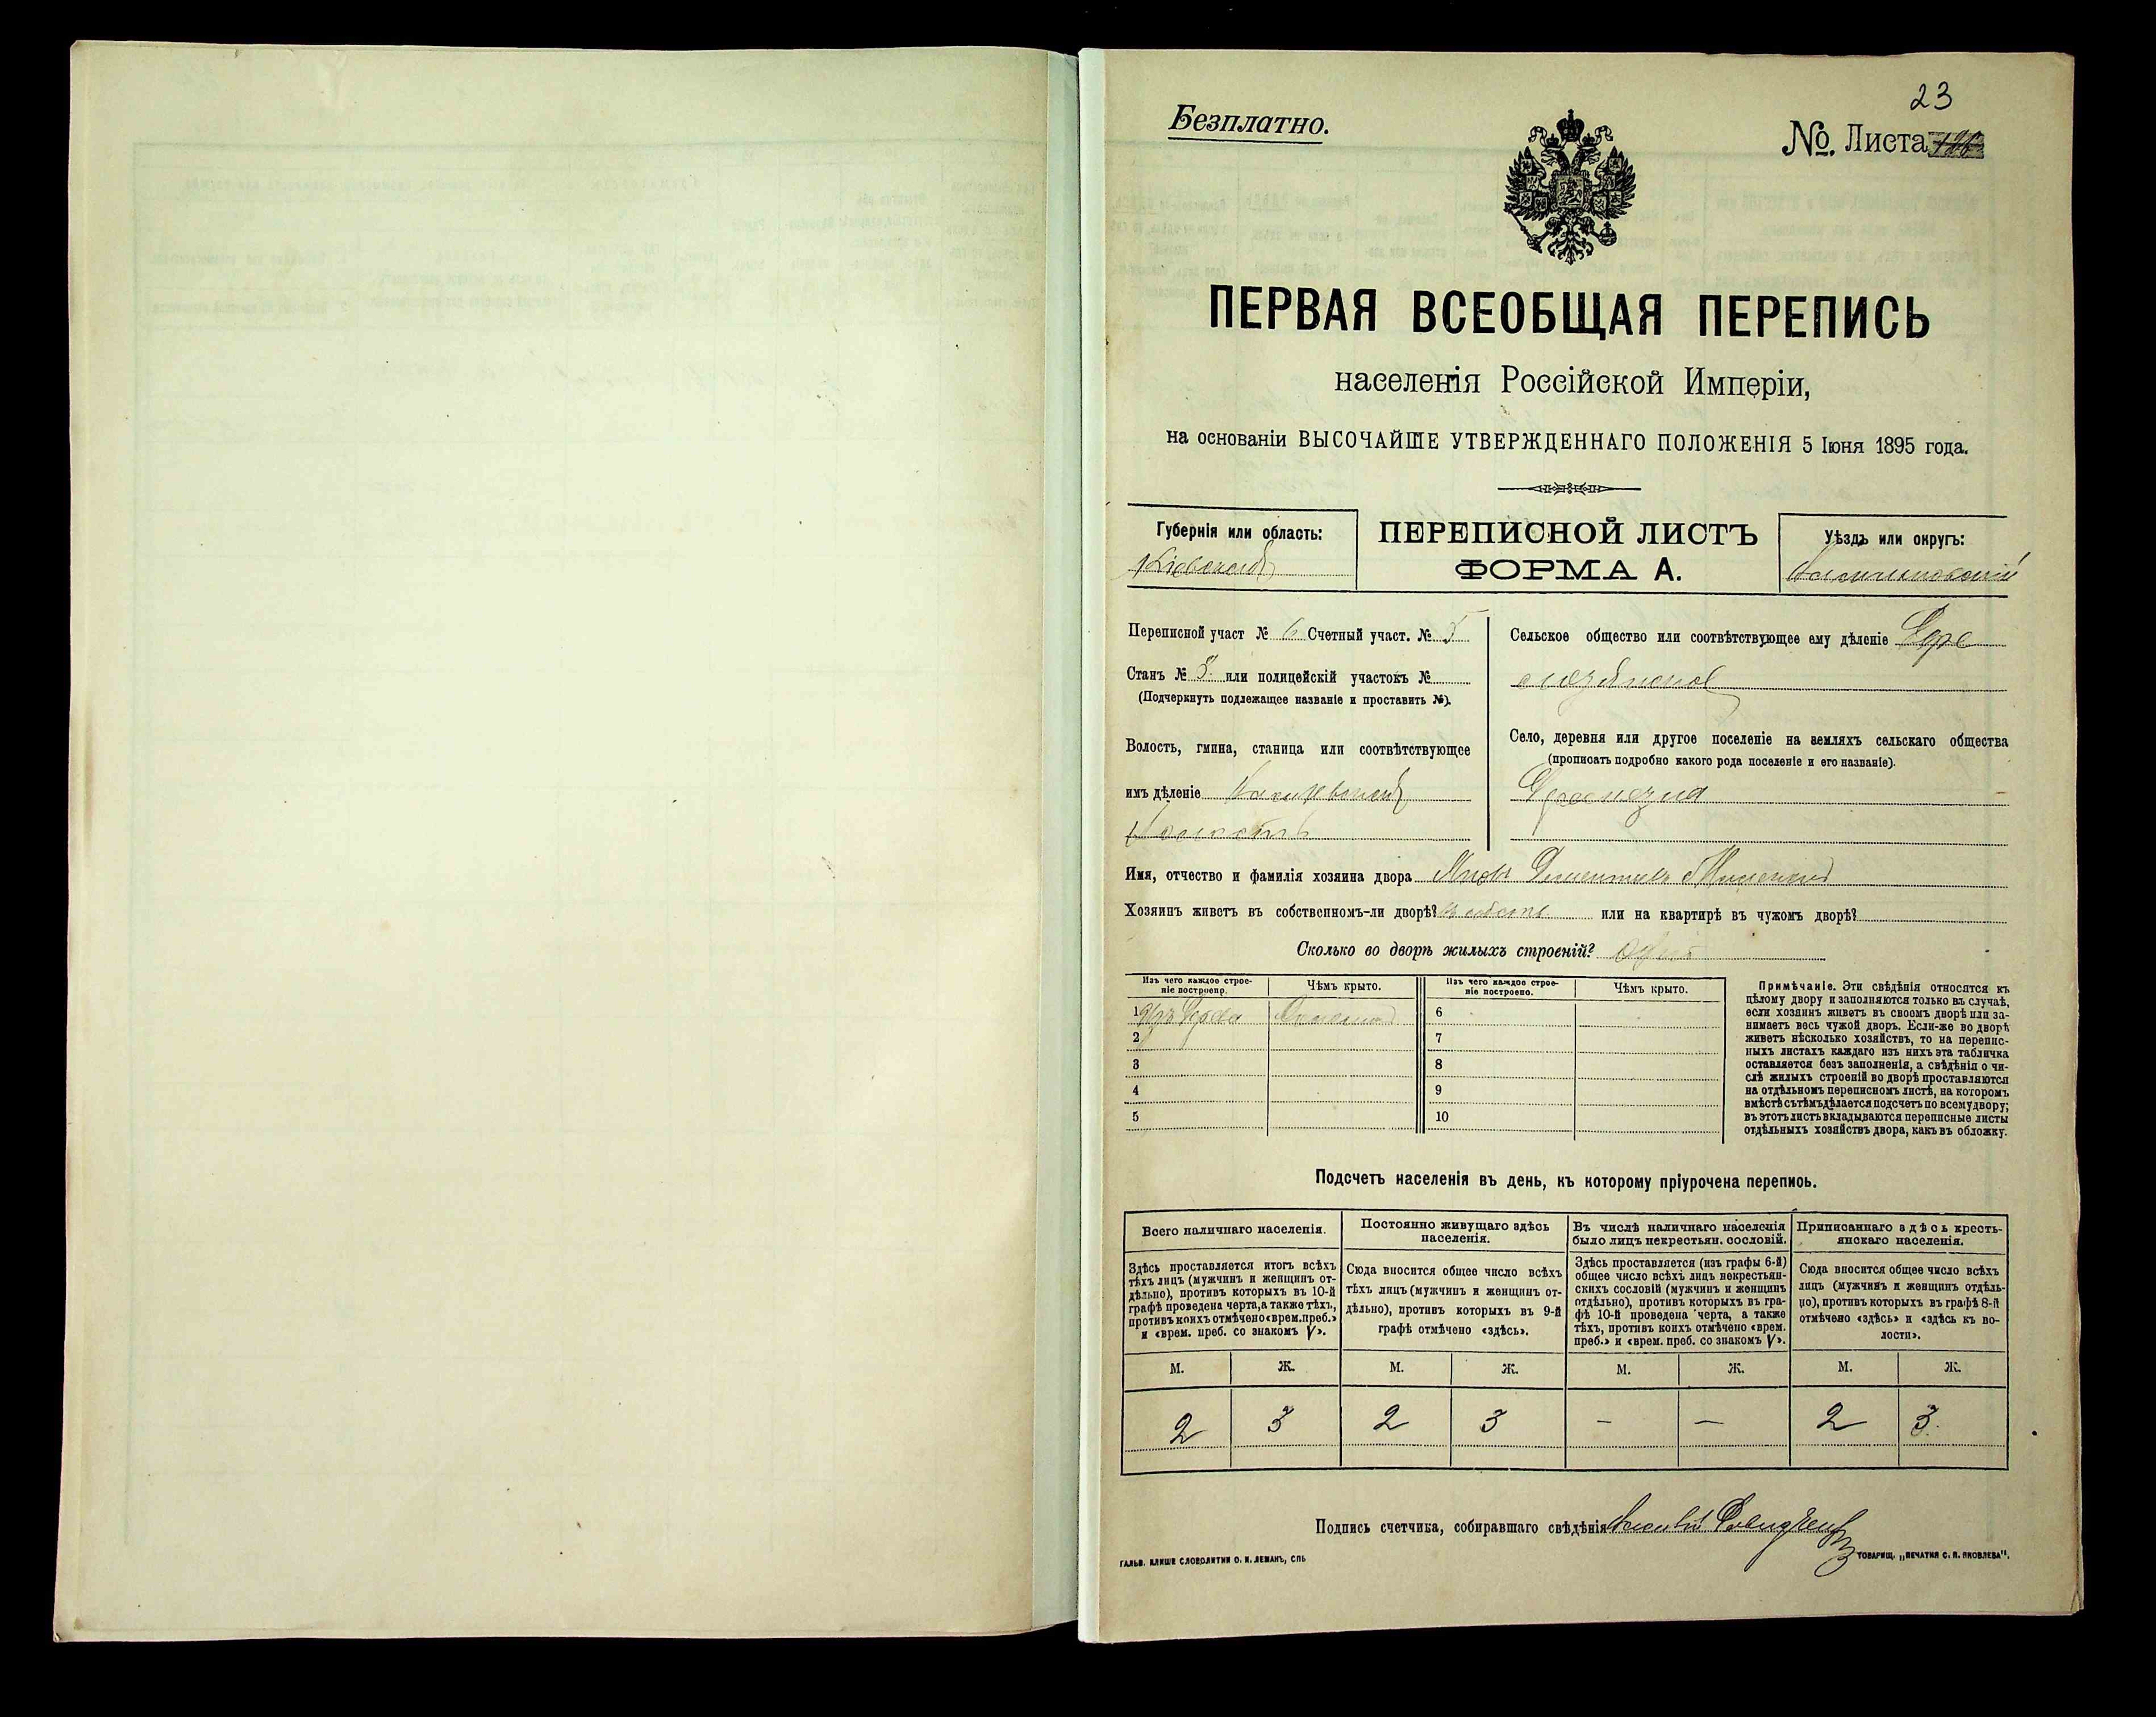 23
Безплатно.
№. Листа
ПЕРВАЯ ВСЕОБЩАЯ ПЕРЕПИСЬ
населенія Россійской Имперіи,
на основаніи ВЫСОЧАЙШЕ УТВЕРЖДЕННАГО ПОЛОЖЕНІЯ 5 Іюня 1895 года.
Губернія или область:
Кіевская
ПЕРЕПИСНОЙ ЛИСТЪ
ФОРМА А.
Уѣздъ или округъ:
Переписной участ № 6 Счетный участ. № 5
Станъ № 3. или полицейскій участокъ №
(Подчеркнуть подлежащее названіе и проставить №).
Волость, гмина, станица или соотвѣтствующее
имъ дѣленіе
Волость
Сельское общество или соотвѣтствующее ему дѣленіе
Село, деревня или другое поселеніе на земляхъ сельскаго общества
(прописать подробно какого рода поселеніе и его названіе).
Имя, отчество и фамилія хозяина двора Яковъ
Хозяинъ живетъ въ собственномъ-ли дворѣ? въ собств или на квартирѣ въ чужомъ дворѣ?
Сколько во дворѣ жилыхъ строеній? одно
Изъ чего каждое строе-
ніе построено.
Чѣмъ крыто.
Изъ чего каждое строе-
ніе построено.
Чѣмъ крыто.
1 Изъ дерева Соломой
2
3
4
5
6
7
8
9
10
Примѣчаніе. Эти свѣдѣнія относятся къ
цѣлому двору и заполняются только въ случаѣ,
если хозяинъ живетъ въ своемъ дворѣ или за-
нимаетъ весь чужой дворъ. Если-же во дворѣ
живетъ нѣсколько хозяйствъ, то на перепис-
ныхъ листахъ каждаго изъ нихъ эта табличка
оставляется безъ заполненія, а свѣдѣнія о чи-
слѣ жилыхъ строеній во дворѣ проставляются
на отдѣльномъ переписномъ листѣ, на которомъ
вмѣстѣ съ тѣмъ дѣлается подсчетъ по всему двору;
въ этотъ листъ вкладываются переписные листы
отдѣльныхъ хозяйствъ двора, какъ въ обложку.
Подсчетъ населенія въ день, къ которому пріурочена перепись.
Всего наличнаго населенія.
Здѣсь проставляется итогъ всѣхъ
тѣхъ лицъ (мужчинъ и женщинъ от-
дѣльно), противъ которыхъ въ 10-й
графѣ проведена черта, а также тѣхъ,
противъ коихъ отмѣчено «врем. преб.»
и «врем. преб. со знакомъ V».
Постоянно живущаго здѣсь
населенія.
Сюда вносится общее число всѣхъ
тѣхъ лицъ (мужчинъ и женщинъ от-
дѣльно), противъ которыхъ въ 9-й
графѣ отмѣчено «здѣсь».
Въ числѣ наличнаго населенія
было лицъ некрестьян. сословій.
Здѣсь проставляется (изъ графы 6-й)
общее число всѣхъ лицъ некрестьян-
скихъ сословій (мужчинъ и женщинъ
отдѣльно), противъ которыхъ въ гра-
фѣ 10-й проведена черта, а также
тѣхъ, противъ коихъ отмѣчено «врем.
преб.» и «врем. преб. со знакомъ V».
Приписаннаго здѣсь кресть-
янскаго населенія.
Сюда вносится общее число всѣхъ
лицъ (мужчинъ и женщинъ отдѣль-
но), противъ которыхъ въ графѣ 8-й
отмѣчено «здѣсь» и «здѣсь къ во-
лости».
М. Ж. М. Ж. М. Ж. М. Ж.
2 3 2 3 — — 2 3.
Подпись счетчика, собиравшаго свѣдѣнія
ГАЛЬВ. КЛИШЕ СЛОВОЛИТНИ О. И. ЛЕМАНЪ, СПБ
ТОВАРИЩ. „ПЕЧАТНЯ С. П. ЯКОВЛЕВА".